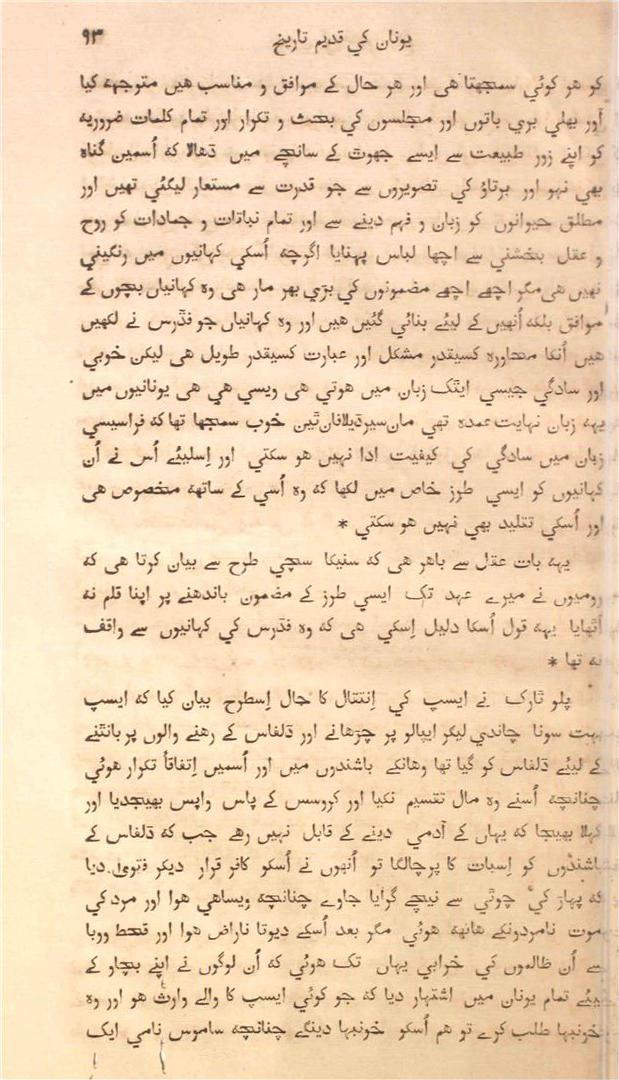 یونان کي قدیم تاریخ ۹۳
کو هر کوئي سمجھتا هی اور هر حال کے موافق و مناسب هیں متوجهه کیا
اور بھلي بري باتوں اور مجلسوں کي بحث و تکرار اور تمام کلمات ضروریه
کو اپنے زور طبیعت سے ایسے جھوٹ کے سانچے میں ڈھالا که اُسمین گناه
بھي نہو اور برتاؤ کي تصویروں سے جو قدرت سے مستعار لیگئي تھیں اور
مطلق حیوانوں کو زبان و فہم دینے سے اور تمام نباتات و جمادات کو روح
و عقل بخشني سے اچھا لباس پہنایا اگرچه اُسکي کہانیوں میں رنگیني
نہیں هی مگر اچھے اچھے مضمونوں کي بڑي بھر مار هی وه کہانیاں بچوں کے
موافق بلکه اُنھیں کے لیئے بنائي گئیں هیں اور وه کہانیاں جو فڈرس نے لکھیں
هیں اُنکا محاوره کسیقدر مشکل اور عبارت کسیقدر طویل هی لیکن خوبي
اور سادگي جیسي ایٹک زبان میں هوتي هی ویسي هي هی یونانیوں میں
یہه زبان نہایت عمده تھي مان‌سیرڈیلافان‌ٹین خوب سمجھا تھا که فراسیسي
زبان میں سادگي کي کیفیت ادا نہیں هو سکتي اور اِسلیئے اُس نے اُن
کہانیوں کو ایسي طرز خاص میں لکھا که وه اُسي کے ساتھه مخصوص هی
اور اُسکي تقلید بھي نہیں هو سکتي *
یہه بات عقل سے باهر هی که سنیکا سچي طرح سے بیان کرتا هی که
رومیوں نے میرے عہد تک ایسي طرز کے مضمون باندھنے پر اپنا قلم نه
اُٹھایا یہه قول اُسکا دلیل اِسکي هی که وه فڈرس کي کہانیوں سے واقف
نه تھا *
پلو ٹارک نے ایسپ کي اِنتقال کا حال اِسطرح بیان کیا که ایسپ
بہت سونا چاندي لیکر اپالو پر چڑھانے اور ڈلفاس کے رهنے والوں پر بانٹنے
کے لیئے ڈلفاس کو گیا تھا وهانکے باشندوں میں اور اُسمیں اِتفاقاً تکرار هوئي
چنانچه اُسنے وه مال تقسیم نکیا اور کروسس کے پاس واپس بھیجدیا اور
کہلا بھیجا که یہاں کے آدمي دینے کے قابل نہیں رهے جب که ڈلفاس کے
باشندوں کو اِسبات کا پرچالگا تو اُنھوں نے اُسکو کافر قرار دیکر فتویٰ دیا
که پہاڑ کي چوٹي سے نیچے گرایا جاوے چنانچه ویساهي هوا اور مرد کي
موت نامردونکے هاتھه هوئي مگر بعد اُسکے دیوتا ناراض هوا اور قحط و وبا
سے اُن ظالموں کي خرابي یہاں تک هوئي که اُن لوگوں نے اپنے بچاو کے
لیئے تمام یونان میں اشتہار دیا که جو کوئي ایسپ کا والے وارث هو اور وه
خونبہا طلب کرے تو هم اُسکو خونبہا دینگے چنانچه ساموس نامي ایک